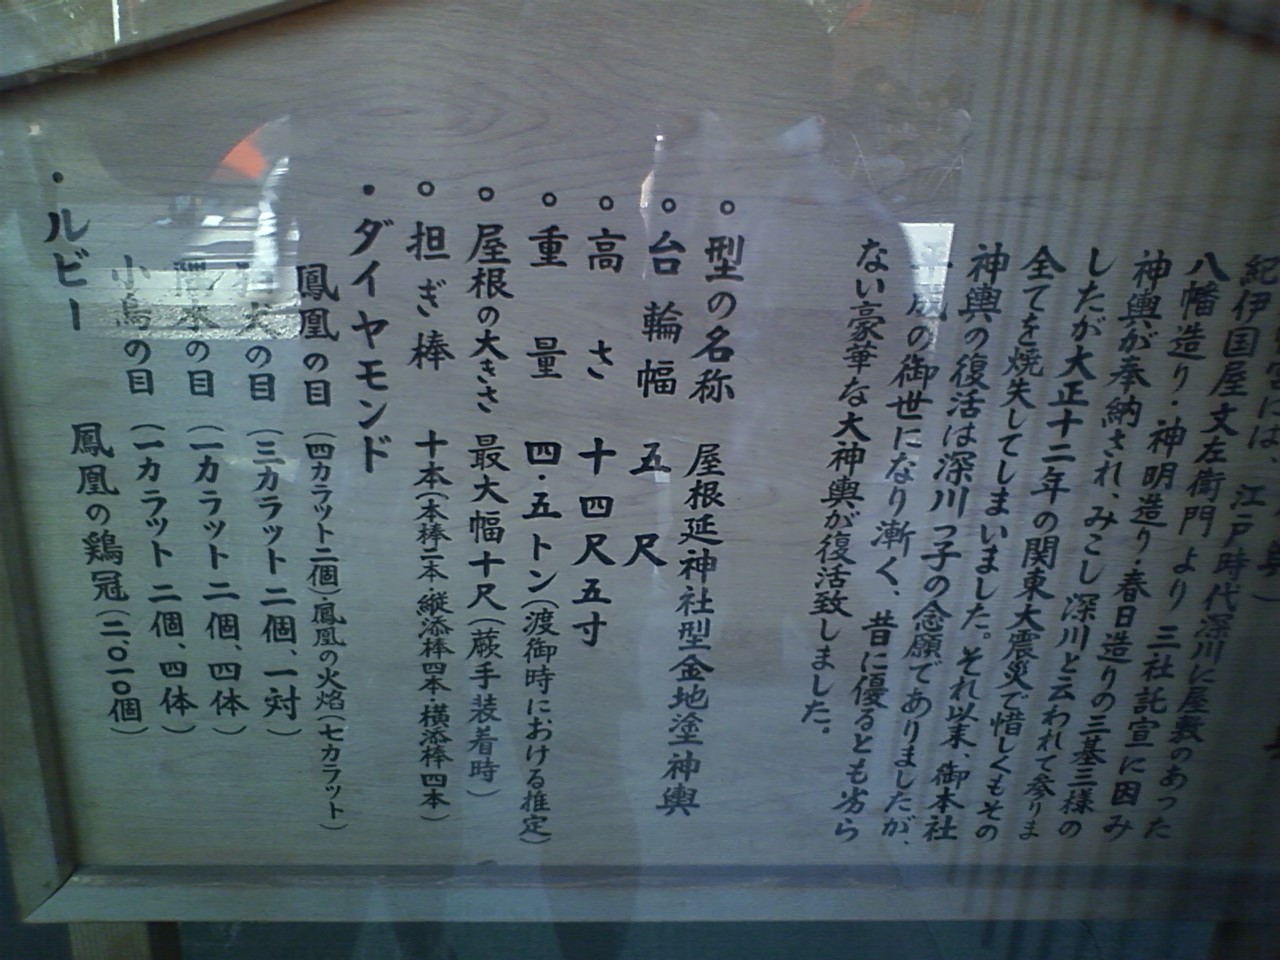 宮は、
紀伊国屋文左衛門より
江戸時代深川に屋敷のあった
八幡造り・神明造り・春日造りの三基三様の
神輿が奉納され、みこし深川と云われて参りま
したが大正十二年の関東大震災で惜しくもその
全てを焼失してしまいました。それ以来、御本社
神輿の復活は深川っ子の念願でありましたが、
成の御世になり漸く、昔に優るとも劣ら
ない豪華な大神輿が復活致しました。
○型の名称 屋根延神社型金地塗神輿
○台輪幅 五尺
○高さ 十四尺五寸
○重量 四・五トン(渡御時における推定)
○屋根の大きさ 最大幅十尺(蕨手装着時)
○担ぎ棒 十本(本棒二本・縦添棒四本・横添棒四本)
・ダイヤモンド
鳳凰の目(四カラット二個)・鳳凰の火焰(七カラット)
犬の目(三カラット二個、一対)
の目(一カラット二個、四体)
小鳥の目(一カラット二個、四体)
・ルビー 鳳凰の鶏冠(二、〇一〇個)